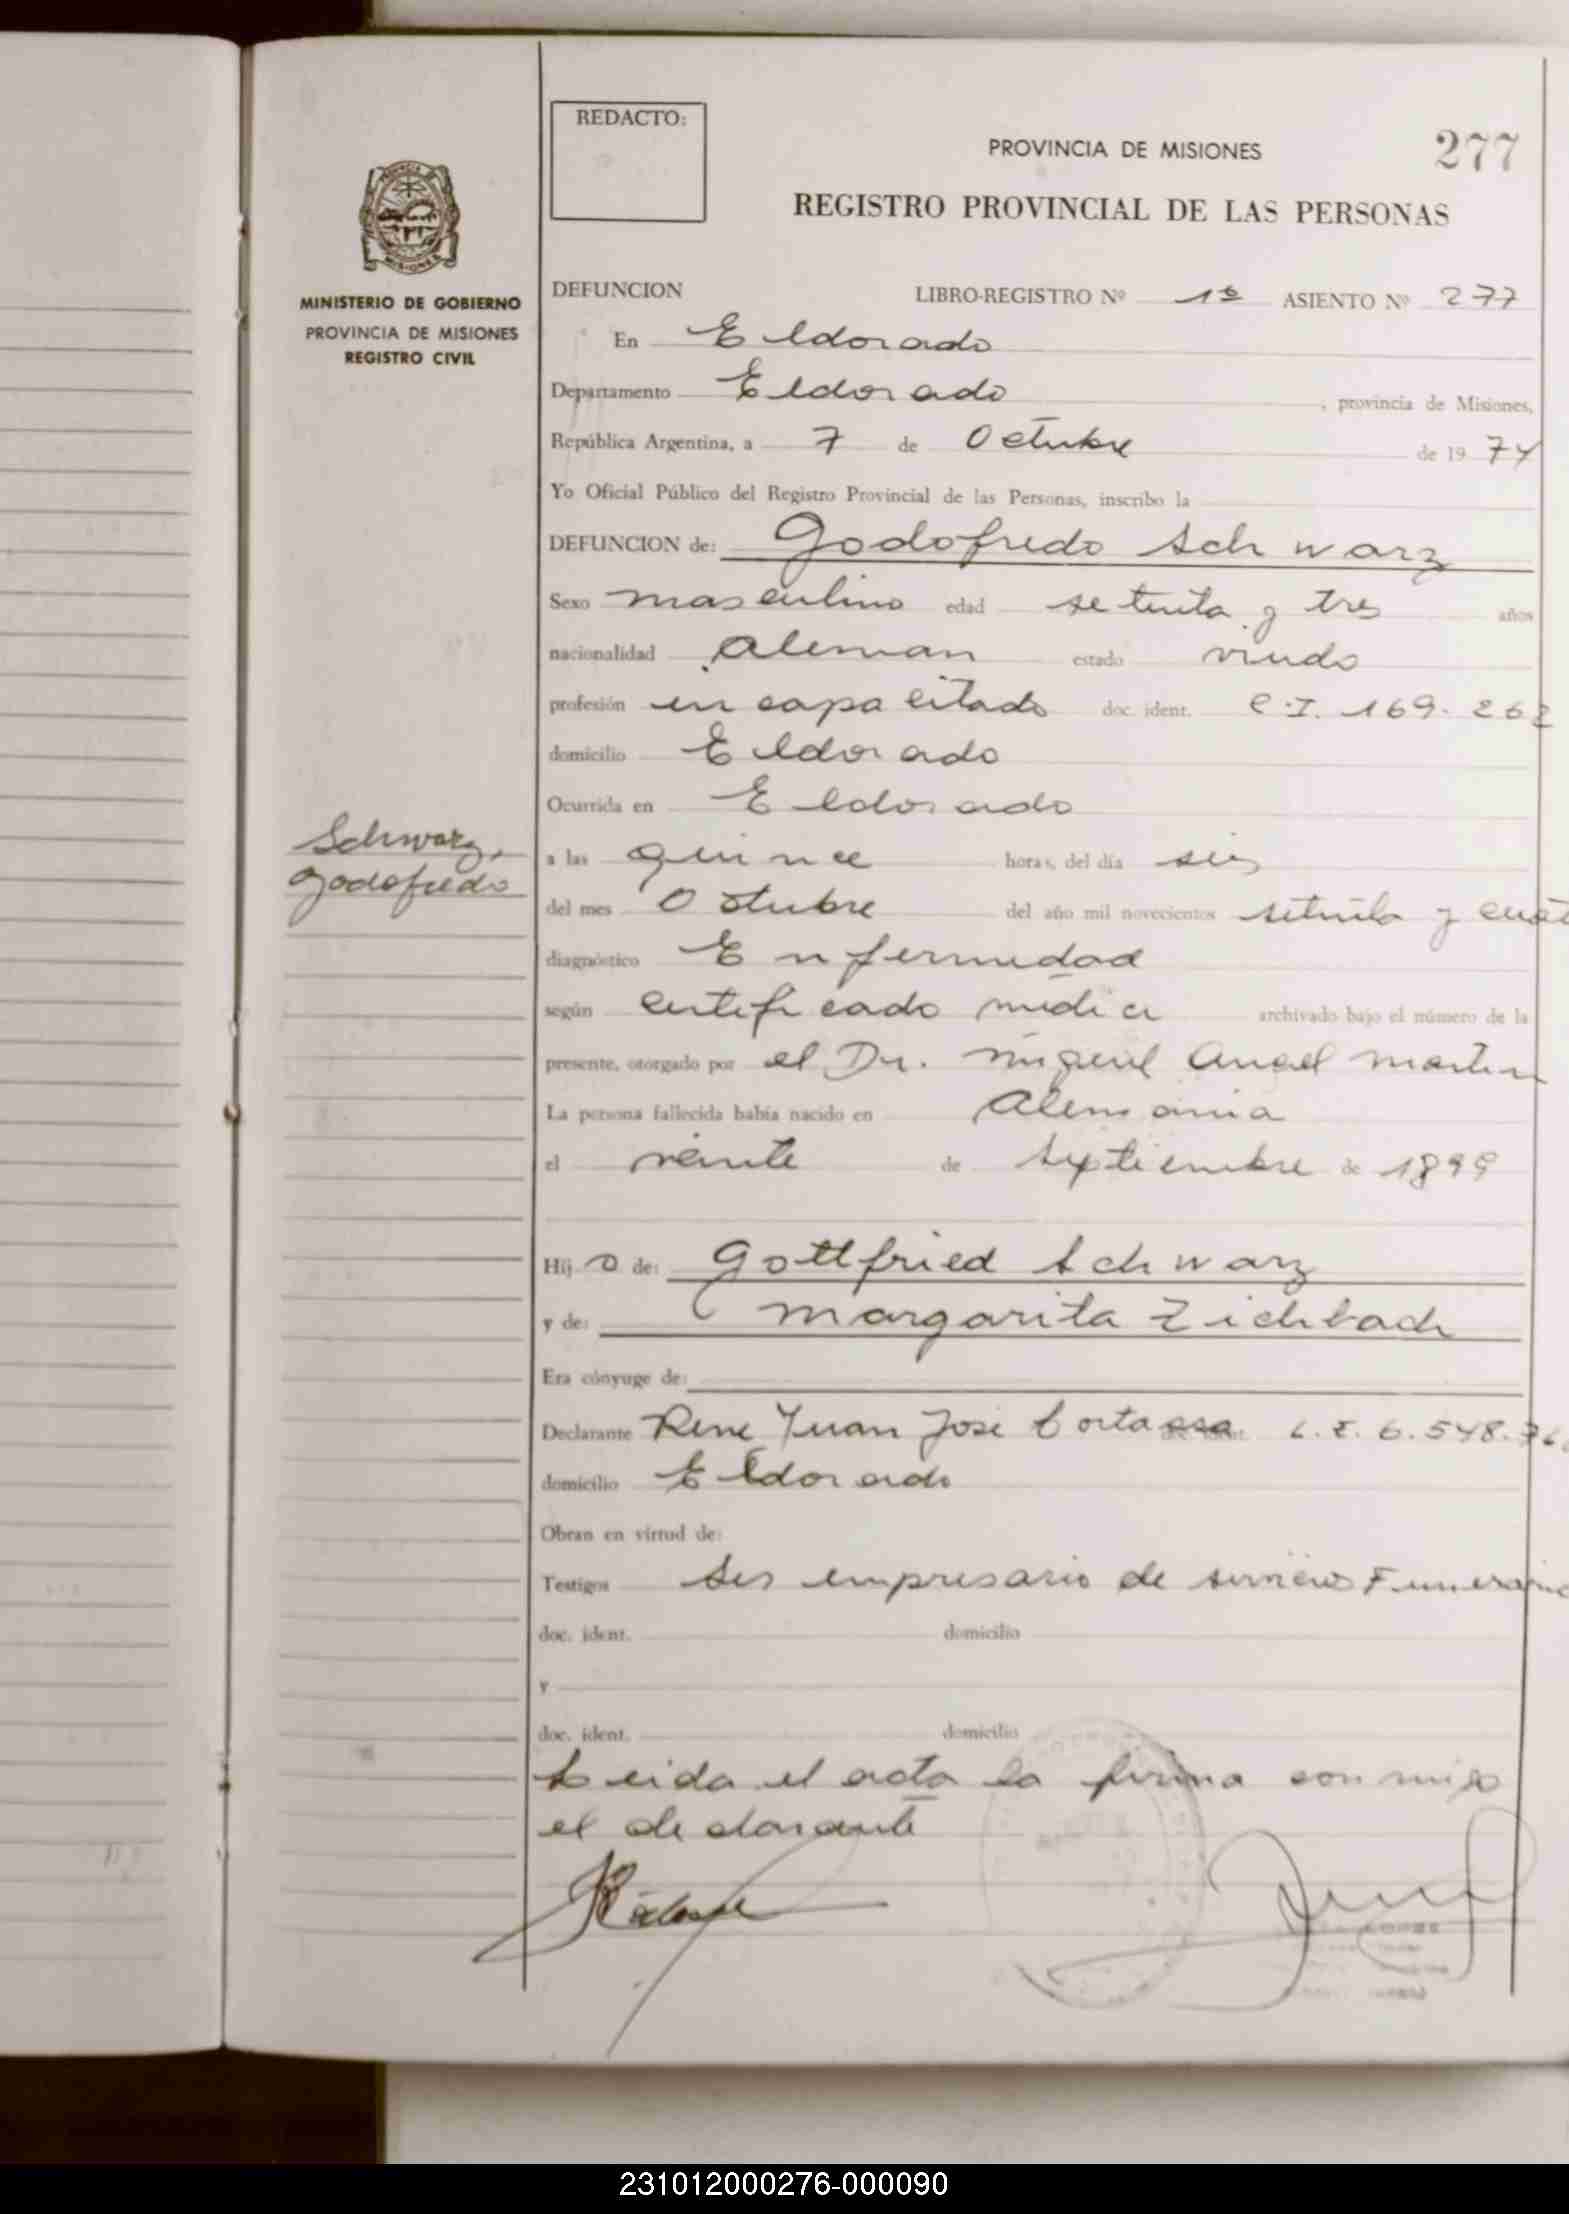 REDACTO:
PROVINCIA DE MISIONES
277
REGISTRO PROVINCIAL DE LAS PERSONAS
MINISTERIO DE GOBIERNO
PROVINCIA DE MISIONES
REGISTRO CIVIL
DEFUNCION LIBRO-REGISTRO Nº 1º ASIENTO Nº 277
En Eldorado
Departamento Eldorado, provincia de Misiones,
República Argentina, a 7 de Octubre de 1974
Yo Oficial Público del Registro Provincial de las Personas, inscribo la
DEFUNCION de: Godofredo Schwarz
Sexo masculino edad setenta y tres años
nacionalidad Aleman estado viudo
profesión incapacitado doc. ident. C.I. 169.262
domicilio Eldorado
Ocurrida en Eldorado
Schwarz,
Godofredo
a las quince horas, del día seis
del mes Octubre del año mil novecientos setenta y cuat
diagnóstico Enfermedad
según certificado medico archivado bajo el número de la
presente, otorgado por el Dr. Miguel Angel Martin
La persona fallecida había nacido en Alemania
el veinte de septiembre de 1899
Hijo de: Gottfried Schwarz
y de: Margarita Zichbach
Era cónyuge de:
Declarante Rene Juan Jose Cortassa L.E. 6.548.
domicilio Eldorado
Obran en virtud de:
Testigos ser empresario de servicios Funerario
doc. ident. domicilio
y
doc. ident. domicilio
Leida el acta la firma conmigo
el declarante
231012000276-000090